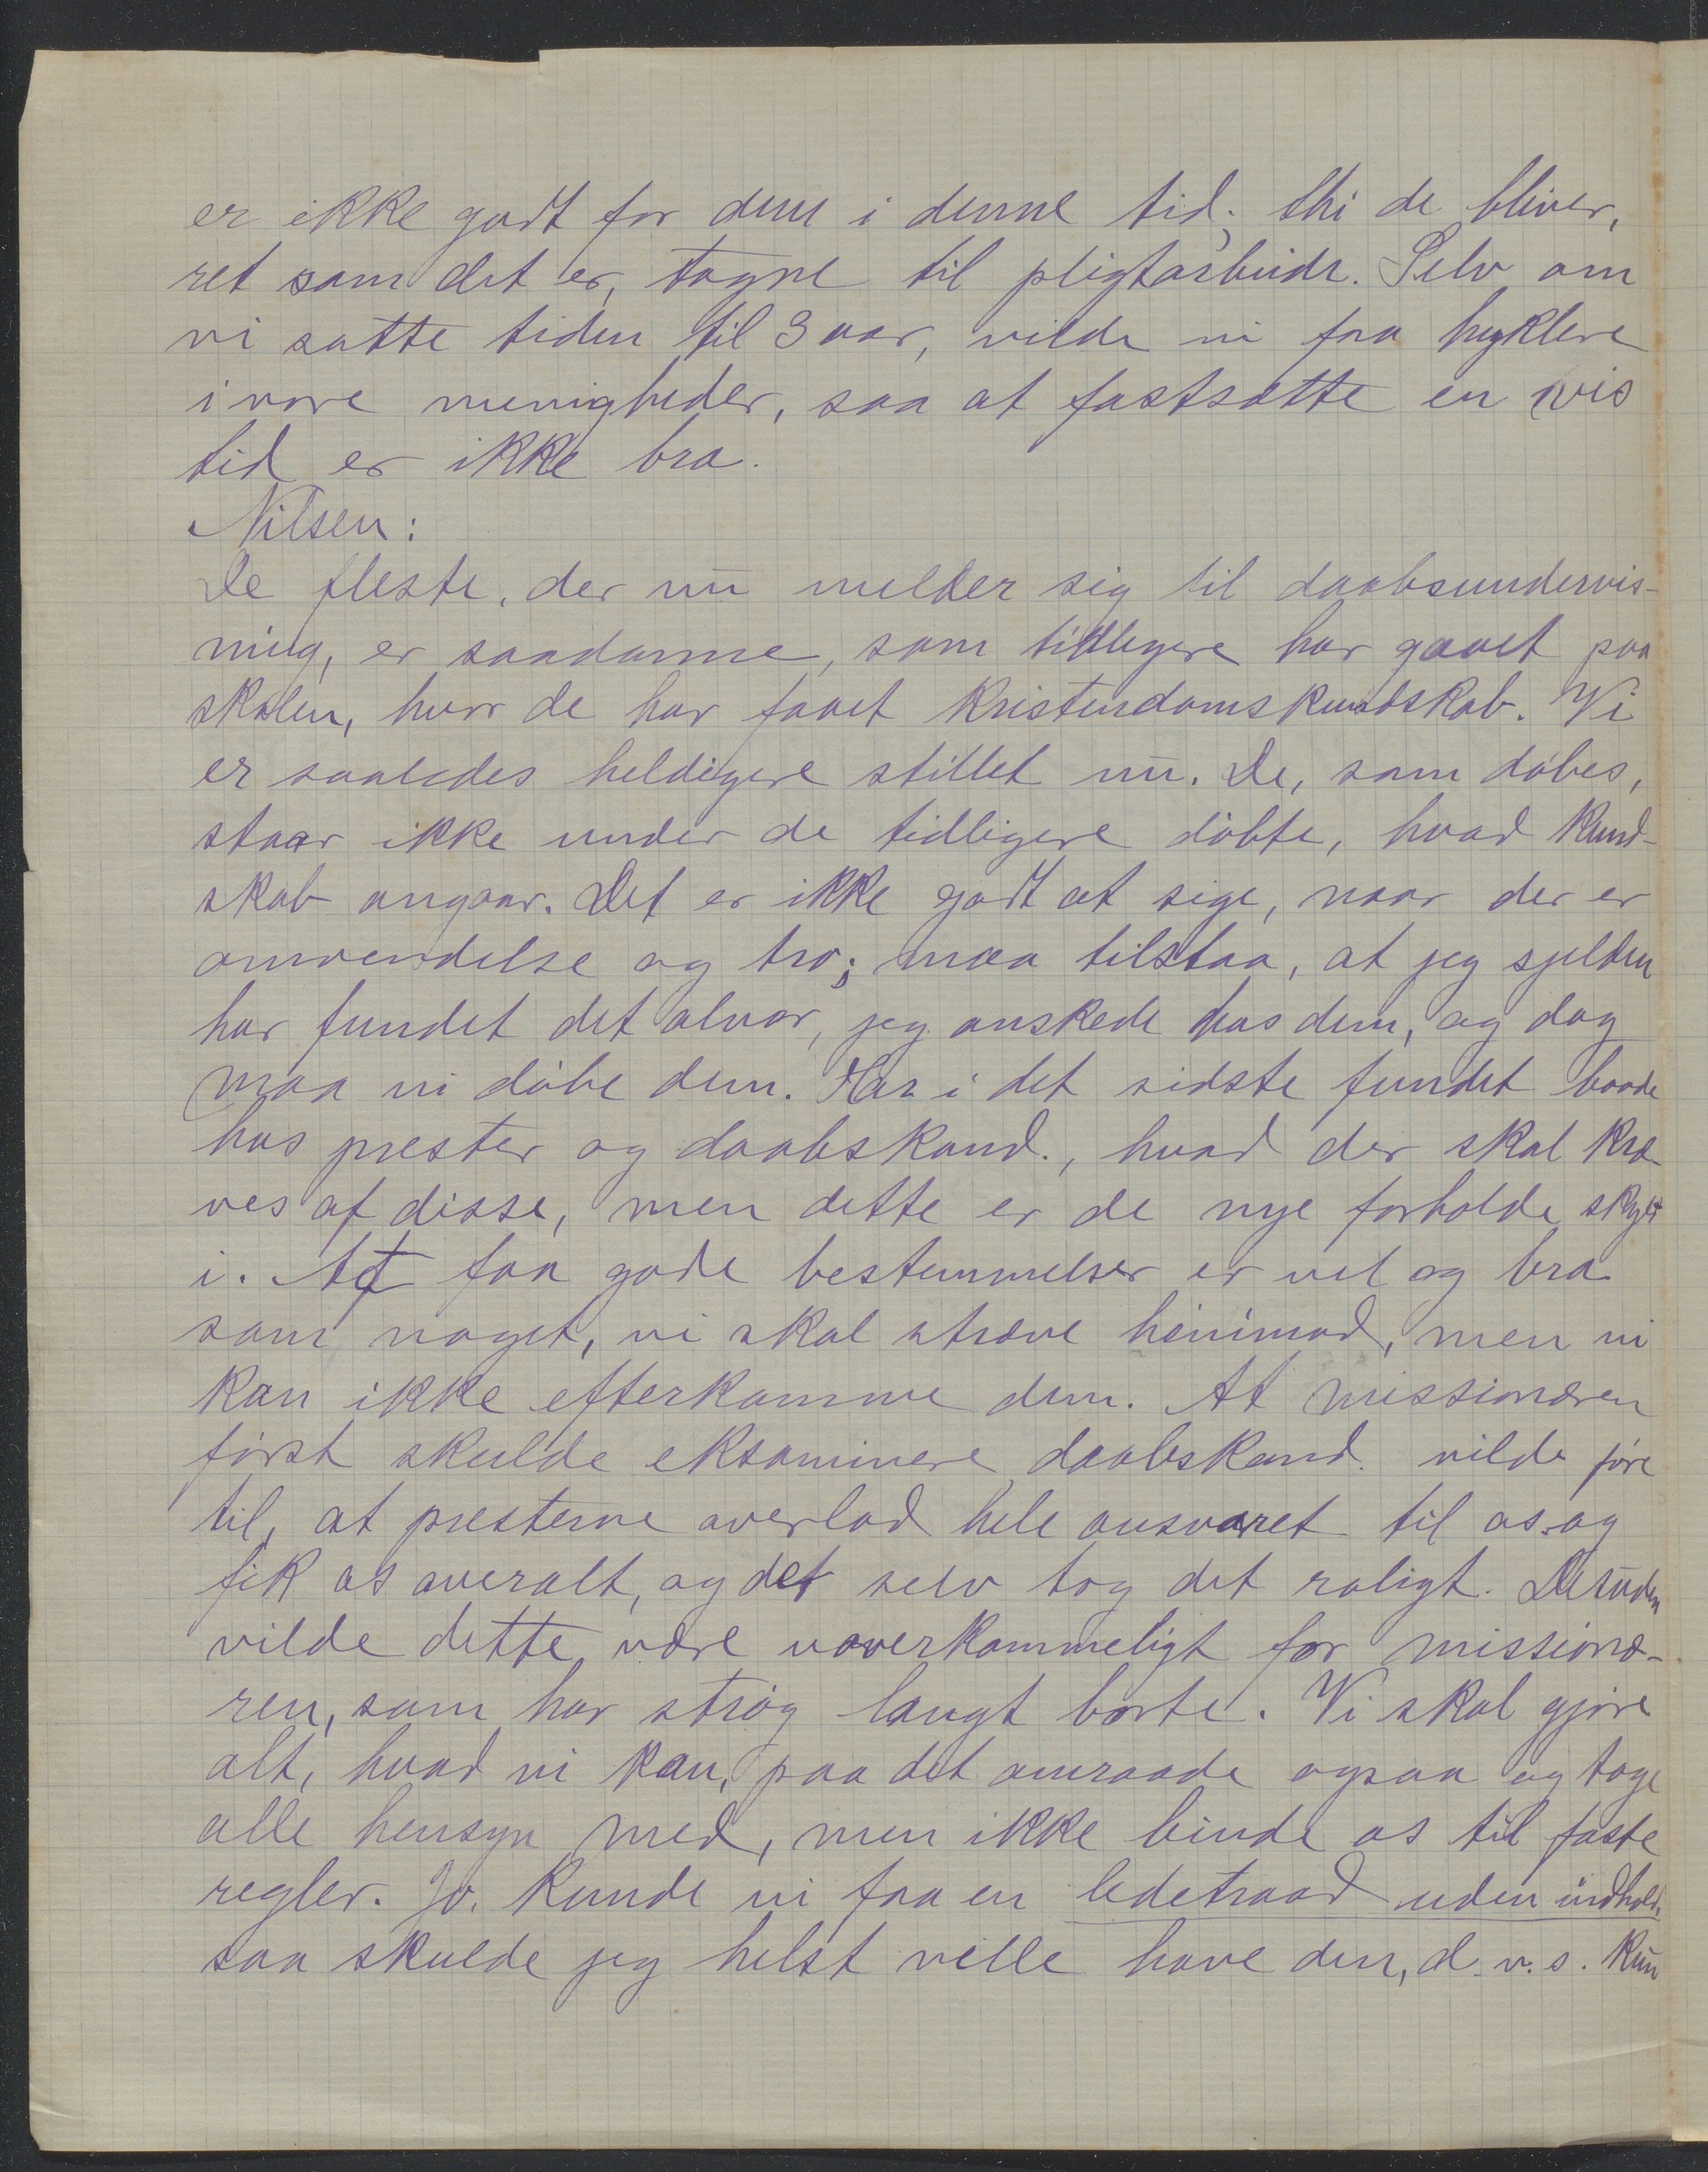 er ikke godt for dem i denne tid; thi de bliver,
ret som det er, tagne til pligtarbeide. Selv om
vi satte tiden til 3 aar, vilde vi faa hyklere
i vore menigheder, saa at fastsætte en vis
tid er ikke bra.
Nilsen:
De fleste, der nu melder sig til daabsundervis-
ning, er saadanne, som tidligere har gaaet paa
skolen, hvor de har faaet kristendomskundskab. Vi
er saaledes heldigere stillet nu. De, som døbes,
staar ikke under de tidligere døbte, hvad kund-
skab angaar. Det er ikke godt at sige, naar der er
omvendelse og tro; maa tilstaa, at jeg sjelden
har fundet det alvor, jeg ønskede hos dem, og dog
maa vi døbe dem. Har i det sidste fundet baade
hos prester og daabskand., hvad der skal kræ-
ves af disse, men dette er de nye forholde skyld
i. At faa gode bestemmelser er vel og bra
som noget, vi skal stræve henimod, men vi
kan ikke efterkomme dem. At missionæren
først skulde eksaminere daabskand. vilde føre
til, at presterne overlod hele ansvaret til os og
fik os overalt, og det selv tog det roligt. Desuden
vilde dette være uoverkommeligt for missionæ-
ren, som har strøg langt borte. Vi skal gjøre
alt, hvad vi kan, paa det omraade ogsaa og tage
alle hensyn med, men ikke binde os til faste
regler. Jo. Kunde vi faa en ledetraad uden indhold,
saa skulde jeg helst ville have den, d.v.s. kun